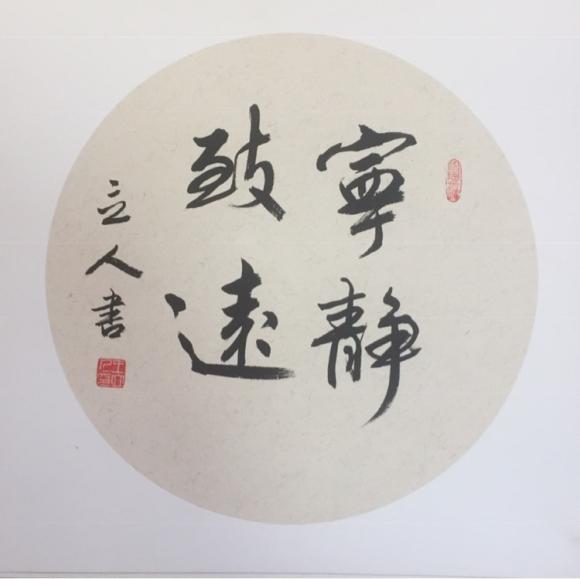 寧靜
致遠
立人書